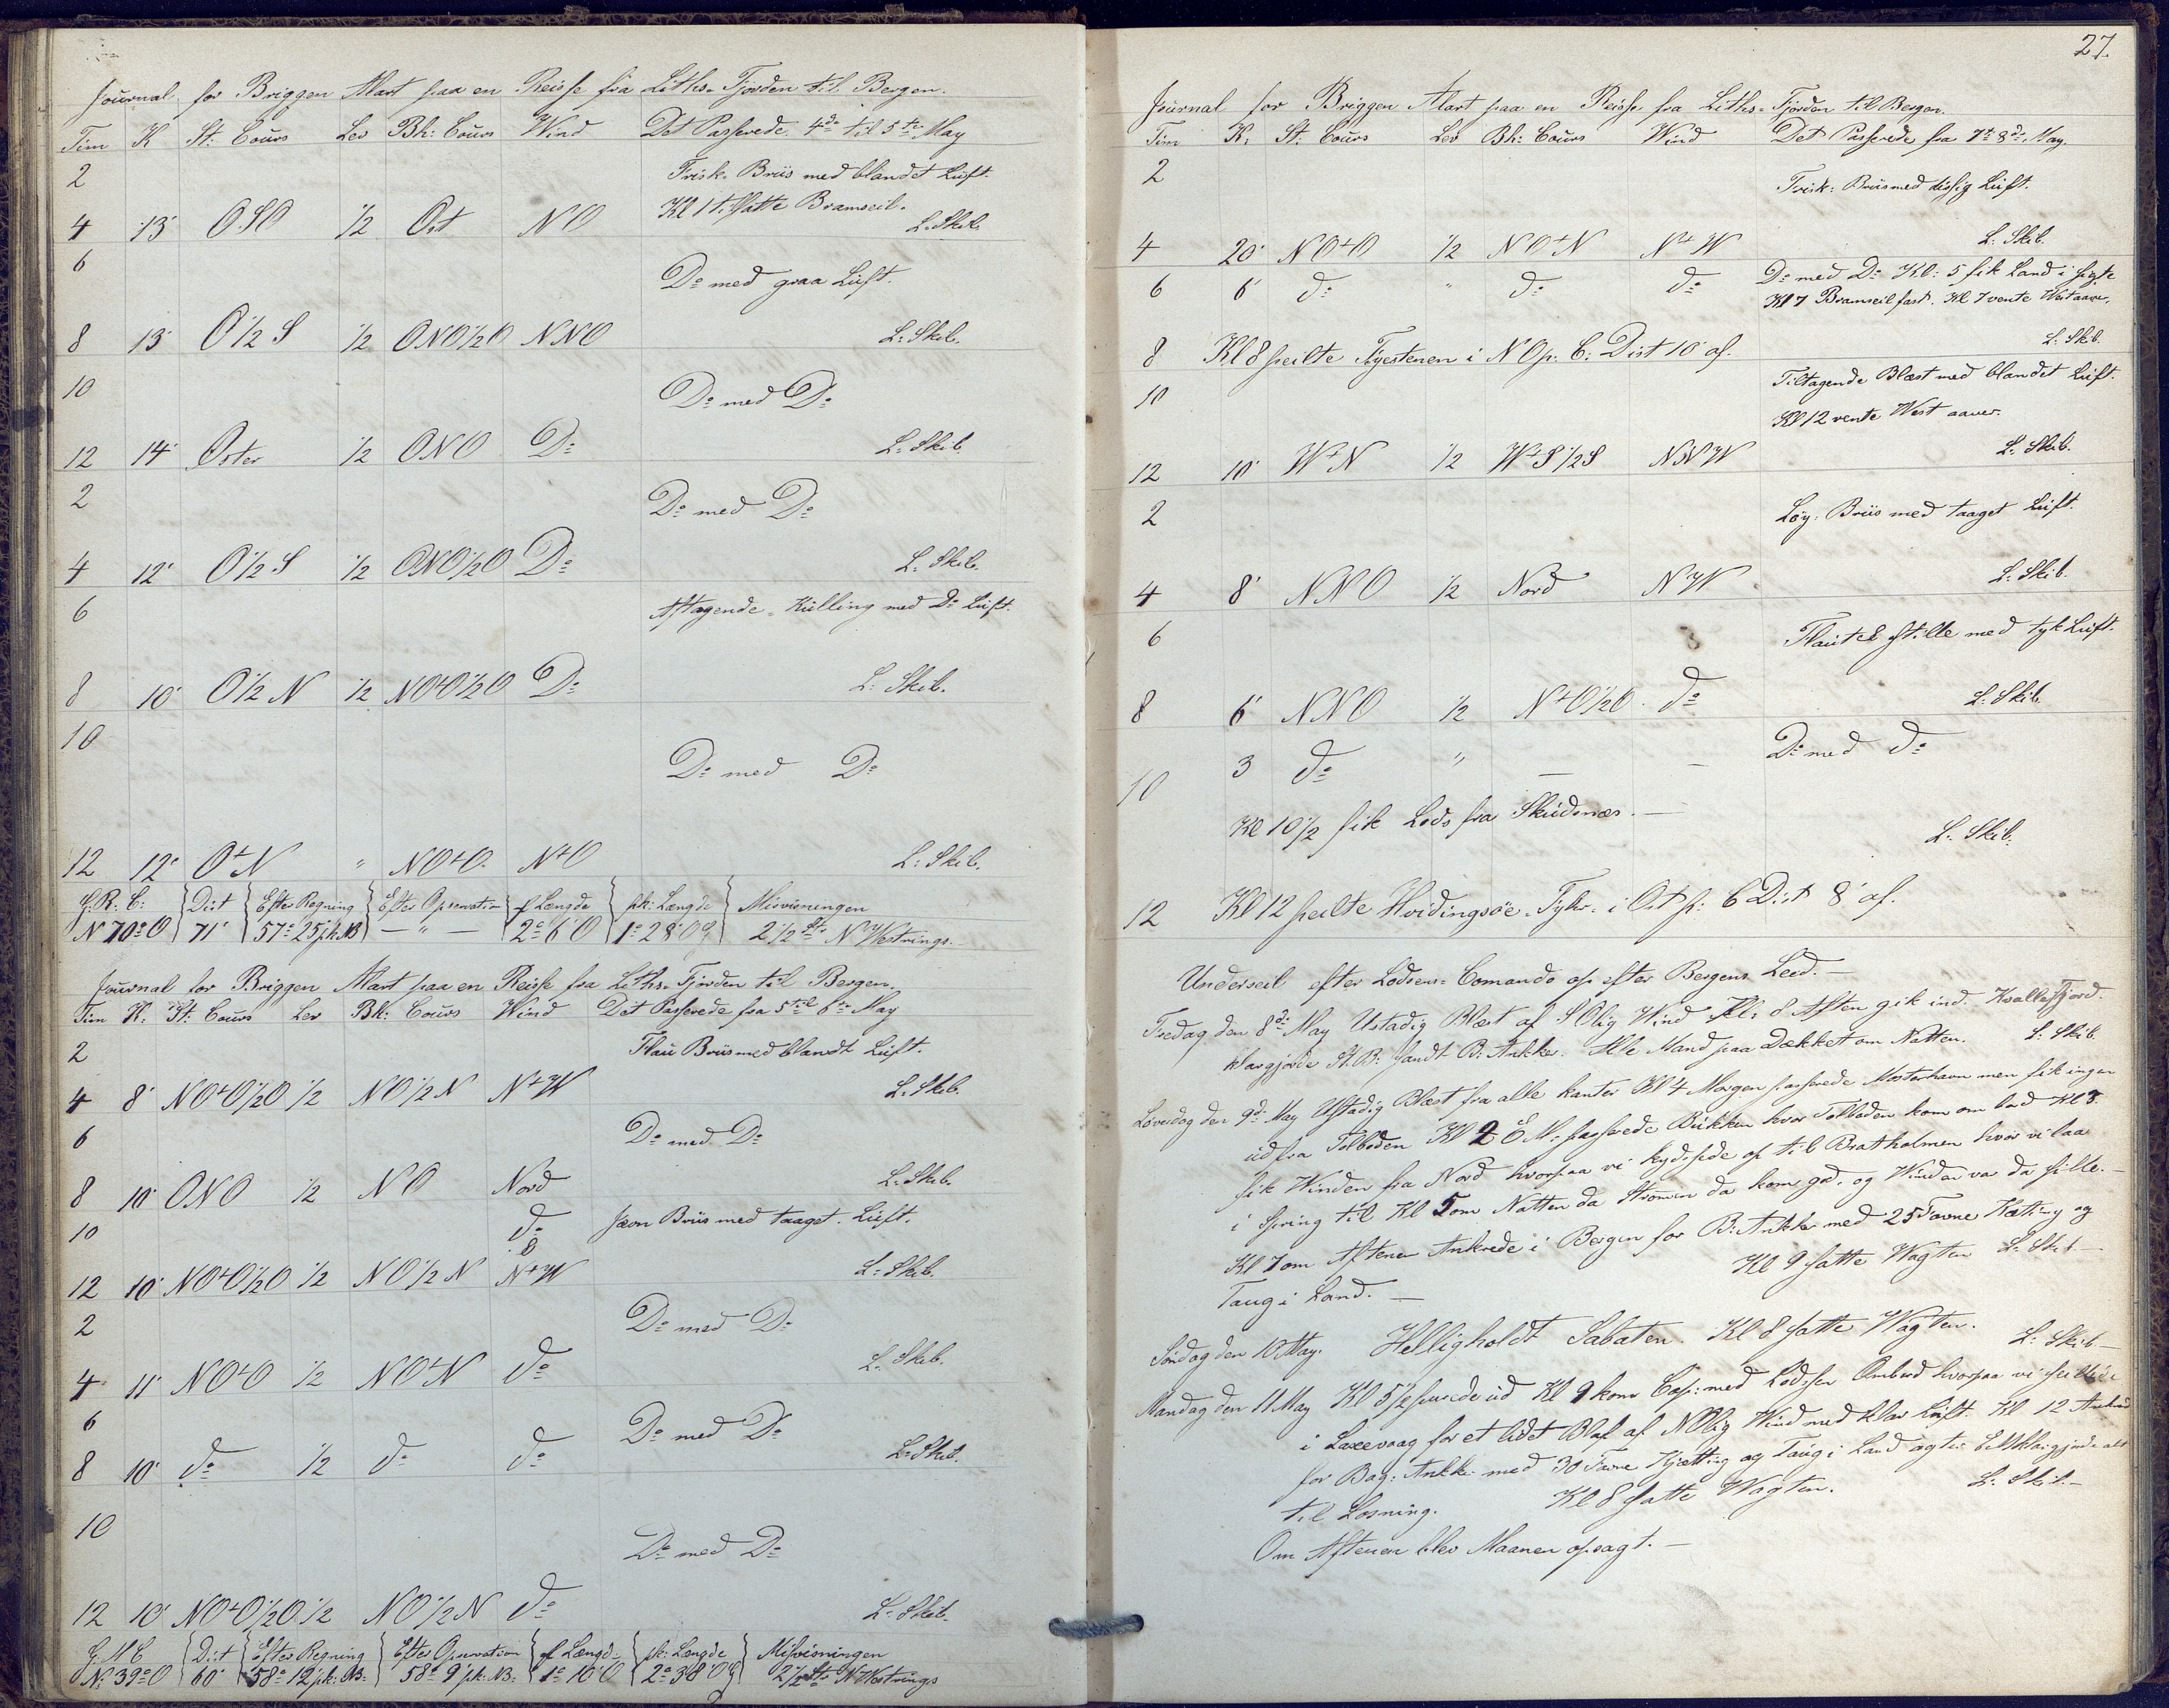 Journal for Briggen Mart paa en Reise fra Liths-Fjorden til Bergen.
Tim K St: Cours Lev Bh: Cours Wind Det Passerede 4de til 5te May
2 Frisk-Briis med blandet Luft.
Kl 1 t: satte Bramseil.
4 13' OSO 1/2 Ost NO L: Skib.
6
Do med graa Luft.
8 13' O 1/2 S 1/2 ONO 1/2 O NNO L: Skib.
10
Do med Do
12 14' Oster 1/2 ONO Do L: Skib
2
Do med Do
4 12' O 1/2 S 1/2 ONO 1/2 O Do L: Skib.
6 Aftagende-Kulling med Do Luft.
8 10' O 1/2 N 1/2 NOtO 1/2 O Do L: Skib.
10
Do med Do
12 12' OtN " NOtO. NtO L: Skib.
G. R. C: Dist Efter Regning Efter Opservation f Længde pk: Længde Misvisningen
N 70o O 71' 57o 25' pk NB — " — 2o 6' O 1o 28' O 2 1/2 St: N Westrings.
Journal for Briggen Mart paa en Reise fra Liths-Fjorden til Bergen.
Tim K: St: Cours Lev Bh: Cours Wind Det Passerede fra 5 til 6te May
2 Flau Briis med blandt Luft.
4 8' NOtO 1/2 O 1/2 NO 1/2 N NtW L: Skib.
6 Do med Do
8 10' ONO 1/2 NO Nord L: Skib.
10 do Jævn Briis med taaget. Luft.
12 10' NOtO 1/2 O 1/2 NO 1/2 N NtW L: Skib.
2 Do med Do
4 11' NOtO 1/2 NOtN do L: Skib.
6 Do med Do
8 10' do 1/2 do do L: Skib.
10
Do med Do
12 10' NOtO 1/2 O 1/2 NO 1/2 N do L: Skib.
G: R C Dist Efter Regning Efter Opservation f Længd- pk: Længde Misvisningen
N: 39o O 60' 58o 12' pk: NB: 58o 9' pk: NB: 1o 10' O 2o 38' O 2 1/2 St: N Westrings
27.
Journal for Briggen Mart paa en Reise fra Liths-Fjorden til Bergen.
Tim K: St. Cours Lev Bh: Cours Wind Det Passerede fra 7t 8de May.
2 Frisk: Briis med disig Luft.
4 20' NOtO 1/2 NOtN NtW L: Skib.
6 6' do " do do Do med Do Kl: 5 fik Land i sigte
Kl 7 Bramseil fast. Kl 7 vente West aaver.
8 Kl 8 peilte Fyestenen i NO p: C: Dist 10' af. L: Skib.
10 Tiltagende Blæst med blandet Luft.
Kl 12 vente West aaver.
12 10' WtN 1/2 WtS 1/2 S NNW L: Skib.
2 Løy: Briis med taaget Luft.
4 8' NNO 1/2 Nord NW L: Skib.
6 Flau til stille med tyk Luft.
8 6' NNO 1/2 NtO 1/2 O. do L: Skib.
3 do " — — Do med do
10
Kl 10 1/2 fik Lods fra Skudsnæs.—
L: Skib.
12 Kl 12 peilte Hvidingsöe-Fyhr- i Ost p: C Dist 8' af.
Underseil efter Lodsens-Comando op efter Bergens Leed.—
Fredag den 8de May Ustadig Blæst af SOlig Wind Kl: 8 Aften gik ind. Kvallefjord.
klargjorde St. B: samt B: Anker. Alle Mand paa Dækket om Natten. L: Skib.
Løverdag den 9de May Ustadig Blæst fra alle kanter Kl 4 Morgen passerede Mosterhavn men fik ingen
ud fra Tolboden Kl 2 EM: passerede Bukken hvor Tolboden kom om bord Kl 3.
fik Winden fra Nord hvorpaa vi krydssede op til Bratholmen hvor vi laa
i Spring til Kl 5 om Natten da Strømin da kom god. og Winden var da stille.—
Kl 7 om Aftenen Ankrede i Bergen for B: Anker med 25 Favne Kæting og
Taug i Land.— Kl 9 satte Wagten L: Skib—
Søndag den 10 May. Helligholdt Sabaten. Kl 8 satte Wagten. L: Skib—
Mandag den 11 May Kl 5 1/2 purrede ud Kl 9 kom Cap: med Lodssen Ombord hvorpaa vi seilede
i Laxevaag for et lidet Blaf af NOlig Wind med klar Luft. Kl 12 Ankred
for Bag: Anker med 30 Favne Kjætting og Taug i Land agter EM klargjorde alt
til Losning. Kl 8 satte Wagten. L: Skib.—
Om Aftenen blev Maanen opsagt.—